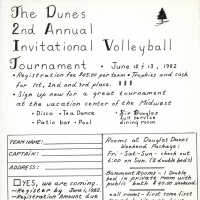 The Dunes
2nd Annual
Invitational Volleyball
Tournament • June 12 & 13, 1982
• Registration fee $25.00 per team • Trophies and cash
for 1st, 2nd and 3rd place. $$$
• Sign up now for a great tournament
at the vacation center of the Midwest
• Disco • Tea Dance
• Patio bar • Pool
full service
dining room
TEAM NAME:
CAPTAIN:
ADDRESS:
YES, we are coming.
• Register by June 1, 1982
• Registration Amount due
Rooms at Douglas Dunes
Weekend Package:
Fri - Sat - Sun - check out
6:00 pm Sun. (2 double beds)
Basement Rooms - 1 Double
bed in private room with
public bath weekend.
• all rooms - first come first